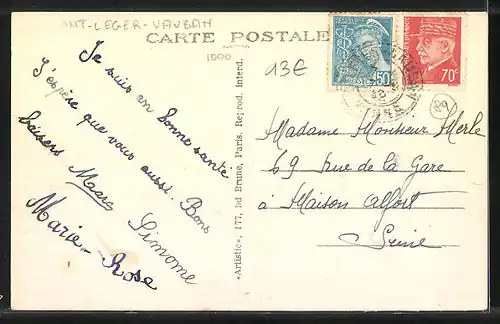 ST-LEGER-VAUBAN
CARTE POSTALE
1500
93E
50
70c
89
Je suis en bonne santé
J'espère que vous aussi. Bons
baisers
Marc
Simone
Marie-Rose
«Artistic», 177, bd Brune, Paris. Reprod. interd.
Madame Monsieur Merle
69 Rue de la Gare
à Maison Alfort
Seine